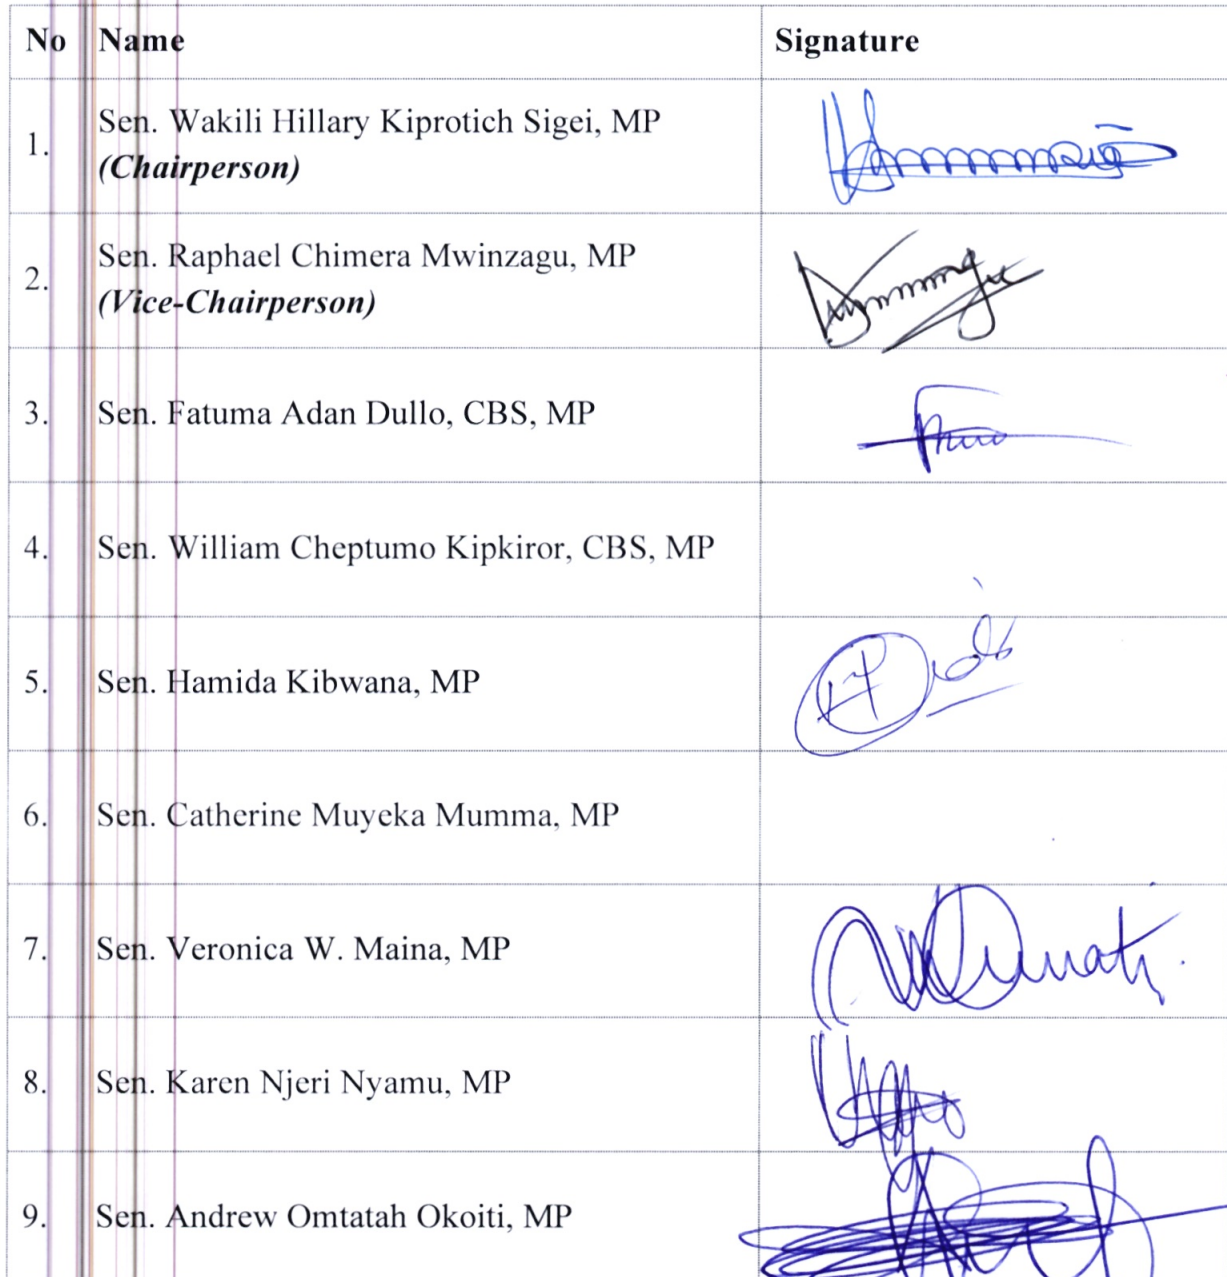 No Name Signature
1. Sen. Wakili Hillary Kiprotich Sigei, MP
(Chairperson)
2. Sen. Raphael Chimera Mwinzagu, MP
(Vice-Chairperson)
3. Sen. Fatuma Adan Dullo, CBS, MP
4. Sen. William Cheptumo Kipkiror, CBS, MP
5. Sen. Hamida Kibwana, MP
6. Sen. Catherine Muyeka Mumma, MP
7. Sen. Veronica W. Maina, MP
8. Sen. Karen Njeri Nyamu, MP
9. Sen. Andrew Omtatah Okoiti, MP